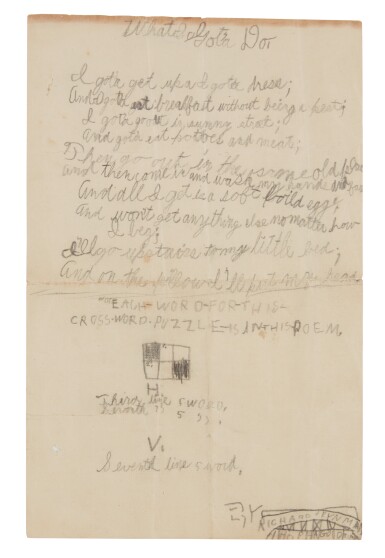 What I Gotta Do.
I gota get up and I gota dress;
And I gota eat breakfast without being a pest;
I gota go in sunny
And gota eat potatoes and meat;
Then go out in the same old
And then come in and wash my hands and
And all I get is a soft boild egg;
And won't get anything else no matter how
I beg;
I'll go upstairs to my little bed;
And on the pillow I'll put my head.
EACH WORD FOR THIS
CROSS-WORD-PUZZLE-IS-IN-THIS POEM
H
Third line 5 WORD,
" 5 "
V.
Seventh line 5 word,
RICHARD